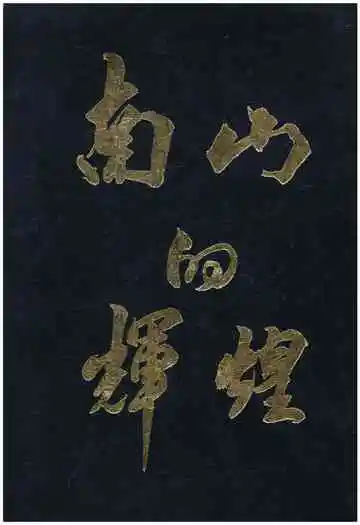 南山
的
輝煌